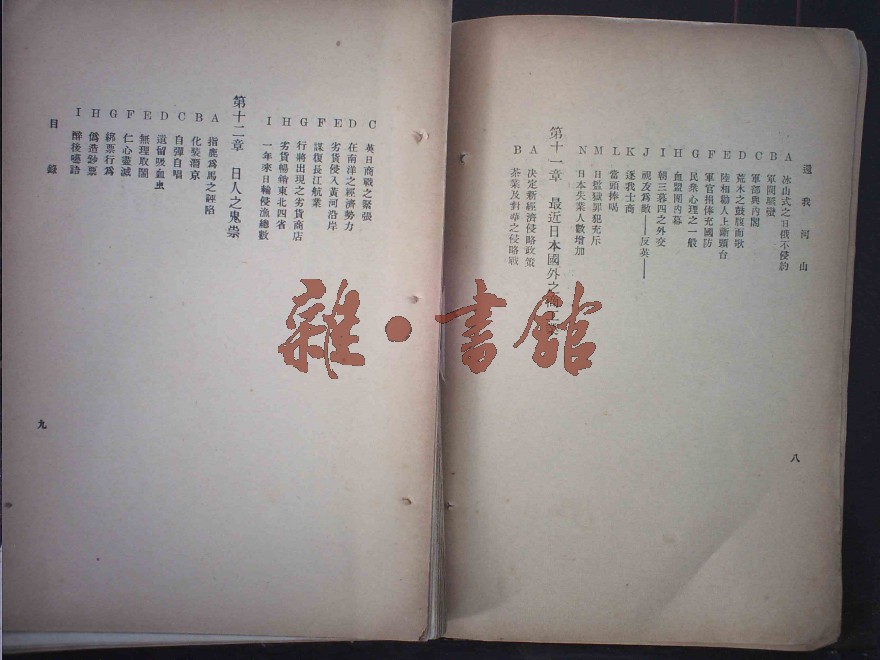 還我河山
A 冰山式之日俄不侵約
B 軍閥驕蠻
C 軍部與內閣
D 荒木之鼓腹而歌
E 陸相勸人上斷頭台
F 軍官捐俸充國防
G 民衆心理之一般
H 血盟團內幕
I 朝三暮四之外交
J 視友爲敵——反英——
K 逐我士商
L 當頭捧喝
M 日監獄罪犯充斥
N 日本失業人數增加
第十一章 最近日本國外之
A 決定新經濟侵略政策
B 茶業及對華之侵略戰
八
C 英日商戰之緊張
D 在南洋之經濟勢力
E 劣貨侵入黃河沿岸
F 謀復長江航業
G 行將出現之劣貨商店
H 劣貨暢銷東北四省
I 一年來日輪侵漁總數
第十二章 日人之鬼祟
A 指鹿爲馬之誣陷
B 化裝潛京
C 自彈自唱
D 還留吸血虫
E 無理取鬧
F 仁心靈滅
G 綁票行爲
H 僞造鈔票
I 醉後囈語
目錄
九
雜·書館